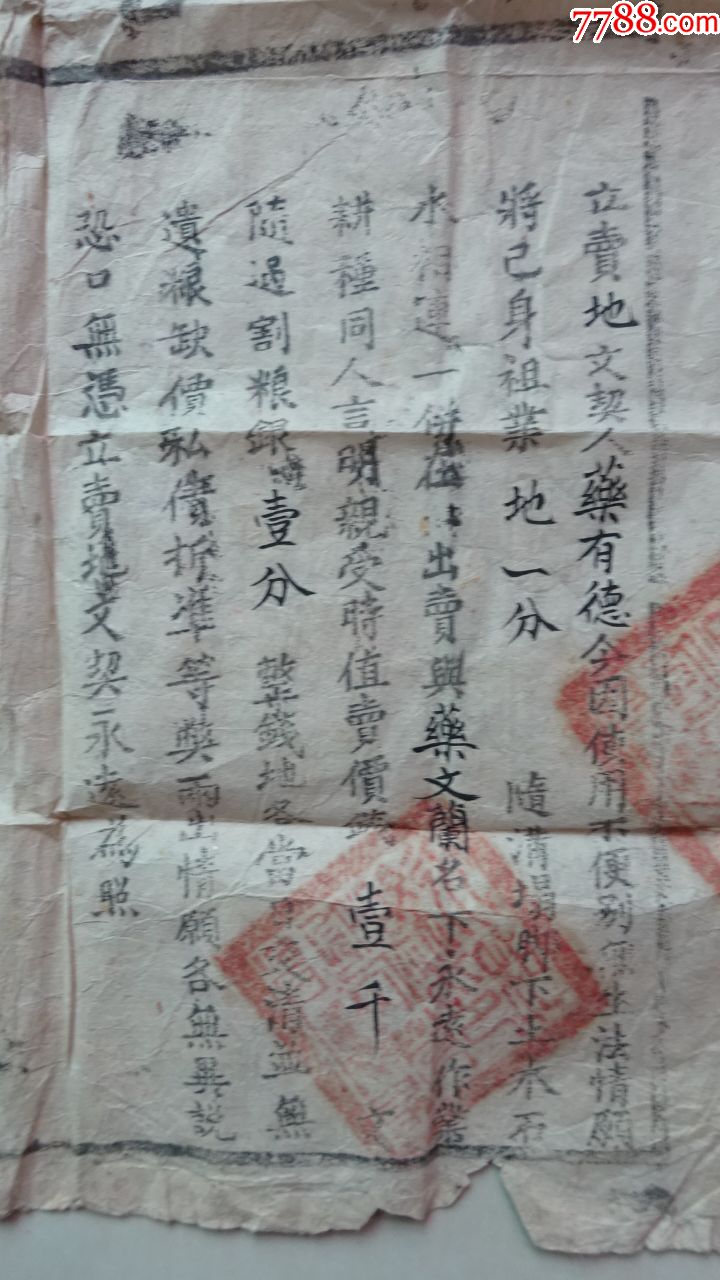 7788.com
立賣地文契人藥有德今因使用不便別無生法情願
將己身祖業地一分隨溝塌則下土木石
水相連一併在出賣與藥文蘭名下永遠作業
耕種同人言明親受時值賣價錢壹千文
隨過割粮銀壹分整錢地各當日交清並無
遺粮欽價私債折準等獘兩出情願各無異説
恐口無憑立賣地文契永遠為照